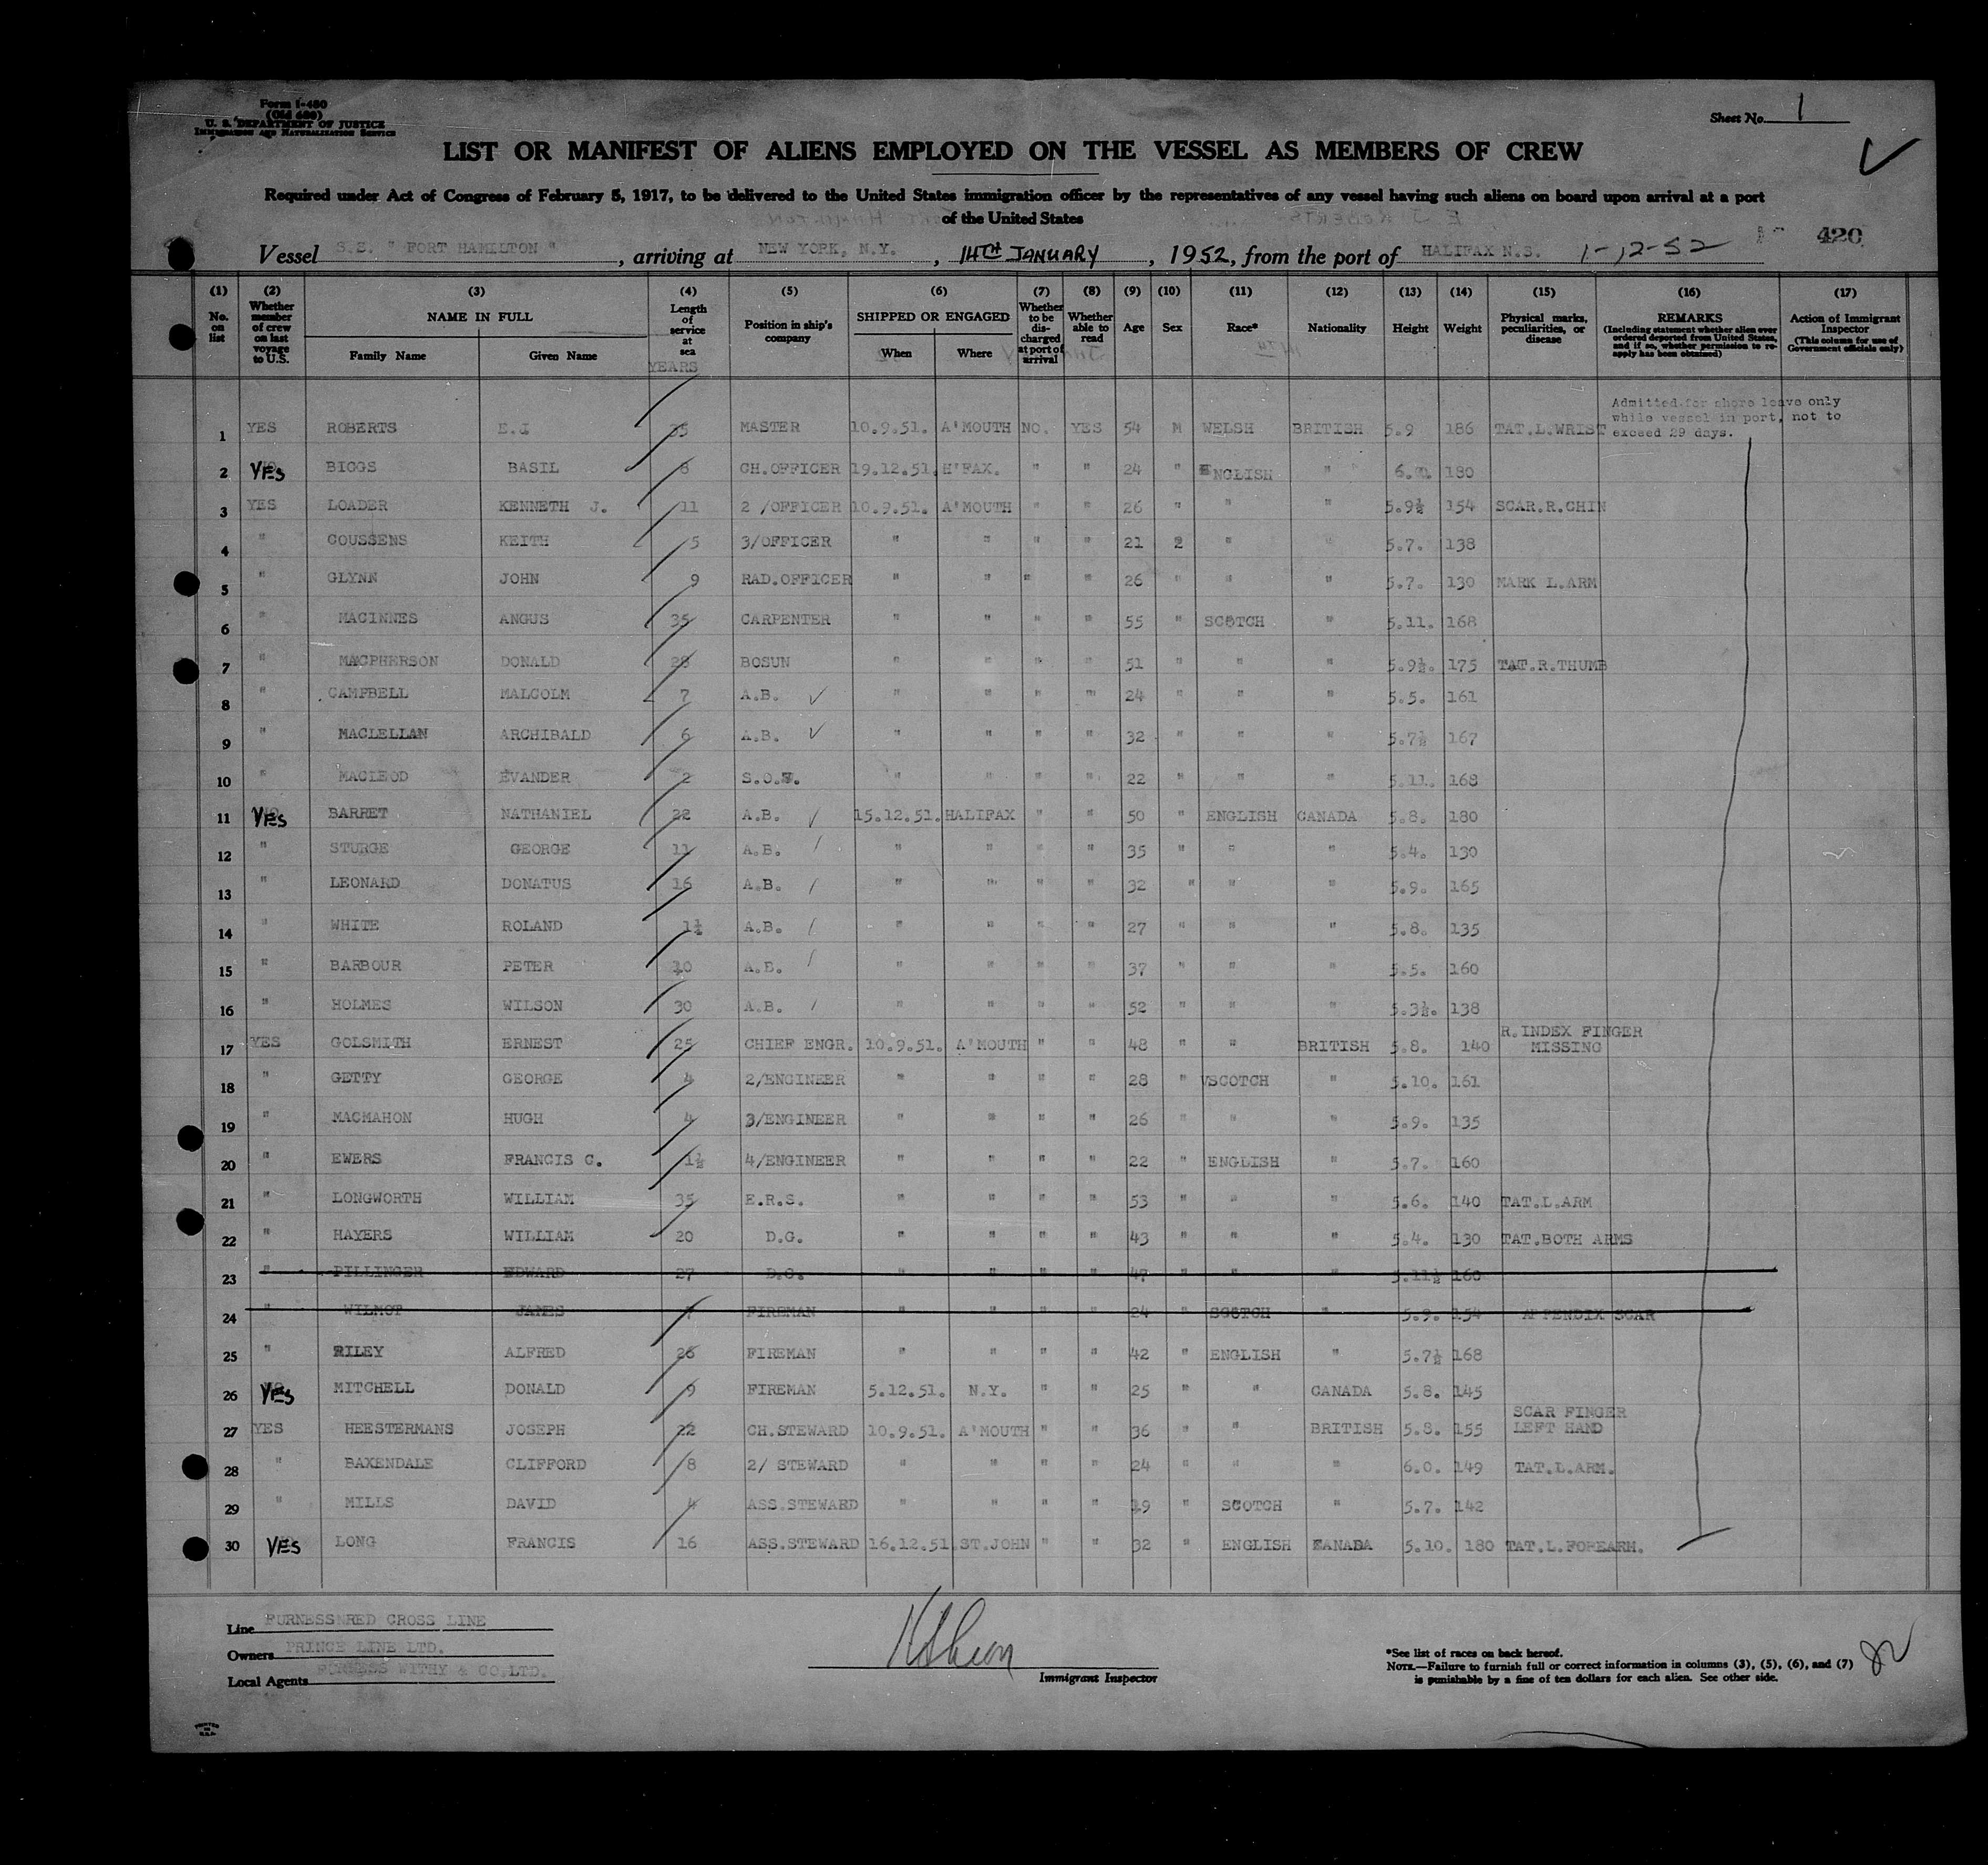 Form I-480
(Old 680)
U. S. DEPARTMENT OF JUSTICE
IMMIGRATION AND NATURALIZATION SERVICE
Sheet No. 1
LIST OR MANIFEST OF ALIENS EMPLOYED ON THE VESSEL AS MEMBERS OF CREW
Required under Act of Congress of February 5, 1917, to be delivered to the United States immigration officer by the representatives of any vessel having such aliens on board upon arrival at a port
of the United States
420
Vessel S.S. " FORT HAMILTON ", arriving at NEW YORK, N.Y., 14TH JANUARY, 1952, from the port of HALIFAX N.S. 1-12-52
(1) (2) (3) (4) (5) (6) (7) (8) (9) (10) (11) (12) (13) (14) (15) (16) (17)
No. on list
Whether member of crew on last voyage to U.S.
NAME IN FULL
Family Name
Given Name
Length of service at sea
YEARS
Position in ship's company
SHIPPED OR ENGAGED
When
Where
Whether to be discharged at port of arrival
Whether able to read
Age
Sex
Race*
Nationality
Height
Weight
Physical marks, peculiarities, or disease
REMARKS
(Including statement whether alien ever ordered deported from United States, and if so, whether permission to reapply has been obtained)
Action of Immigrant Inspector
(This column for use of Government officials only)
Admitted for shore leave only
while vessel in port, not to
exceed 29 days.
1 YES ROBERTS E.J 35 MASTER 10.9.51. A'MOUTH NO. YES 54 M WELSH BRITISH 5.9 186 TAT.L.WRIST
2 YES BIGGS BASIL 8 CH.OFFICER 19.12.51. H'FAX. " " 24 " ENGLISH " 6.0. 180
3 YES LOADER KENNETH J. 11 2 /OFFICER 10.9.51. A'MOUTH " " 26 " " " 5.9½ 154 SCAR.R.CHIN
4 " COUSSENS KEITH 5 3/OFFICER " " " " 21 2 " " 5.7. 138
5 " GLYNN JOHN 9 RAD.OFFICER " " " " 26 " " " 5.7. 130 MARK L.ARM
6 " MACINNES ANGUS 35 CARPENTER " " " " 55 " SCOTCH " 5.11. 168
7 " MACPHERSON DONALD 28 BOSUN " " " " 51 " " " 5.9½. 175 TAT.R.THUMB
8 " CAMPBELL MALCOLM 7 A.B. " " " " 24 " " " 5.5. 161
9 " MACLELLAN ARCHIBALD 6 A.B. " " " " 32 " " " 5.7½ 167
10 " MACLEOD EVANDER 2 S.O.S. " " " " 22 " " " 5.11. 168
11 YES BARRET NATHANIEL 22 A.B. 15.12.51. HALIFAX " " 50 " ENGLISH CANADA 5.8. 180
12 " STURGE GEORGE 11 A.B. " " " " 35 " " " 5.4. 130
13 " LEONARD DONATUS 16 A.B. " " " " 32 " " " 5.9. 165
14 " WHITE ROLAND A.B. " " " " 27 " " " 5.8. 135
15 " BARBOUR PETER 10 A.B. " " " " 37 " " " 5.5. 160
16 " HOLMES WILSON 30 A.B. " " " " 52 " " " 5.3½. 138
17 YES GOLSMITH ERNEST 25 CHIEF ENGR. 10.9.51. A'MOUTH " " 48 " " BRITISH 5.8. 140 R.INDEX FINGER MISSING
18 " GETTY GEORGE 4 2/ENGINEER " " " " 28 " SCOTCH " 5.10. 161
19 " MACMAHON HUGH 4 3/ENGINEER " " " " 26 " " " 5.9. 135
20 " EWERS FRANCIS G. 1½ 4/ENGINEER " " " " 22 " ENGLISH " 5.7. 160
21 " LONGWORTH WILLIAM 35 E.R.S. " " " " 53 " " " 5.6. 140 TAT.L.ARM
22 " HAYERS WILLIAM 20 D.G. " " " " 43 " " " 5.4. 130 TAT.BOTH ARMS
23 " PILLINGER EDWARD 27 D.G. " " " " 47 " " " 5.11½ 160
24 " WILMOT JAMES 7 FIREMAN " " " " 24 " SCOTCH " 5.9. 154 APPENDIX SCAR
25 " RILEY ALFRED 26 FIREMAN " " " " 42 " ENGLISH " 5.7½ 168
26 YES MITCHELL DONALD 9 FIREMAN 5.12.51. N.Y. " " 25 " " CANADA 5.8. 145
27 YES HEESTERMANS JOSEPH 22 CH.STEWARD 10.9.51. A'MOUTH " " 36 " " BRITISH 5.8. 155 SCAR FINGER LEFT HAND
28 " BAXENDALE CLIFFORD 8 2/ STEWARD " " " " 24 " " " 6.0. 149 TAT.L.ARM.
29 " MILLS DAVID 4 ASS.STEWARD " " " " 19 " SCOTCH " 5.7. 142
30 YES LONG FRANCIS 16 ASS.STEWARD 16.12.51. ST.JOHN " " 32 " ENGLISH CANADA 5.10. 180 TAT.L.FOREARM.
Line FURNESS RED CROSS LINE
Owners PRINCE LINE LTD.
Local Agents FURNESS WITHY & CO.LTD.
Immigrant Inspector
*See list of races on back hereof.
NOTE.—Failure to furnish full or correct information in columns (3), (5), (6), and (7)
is punishable by a fine of ten dollars for each alien. See other side.
PRINTED IN U.S.A.